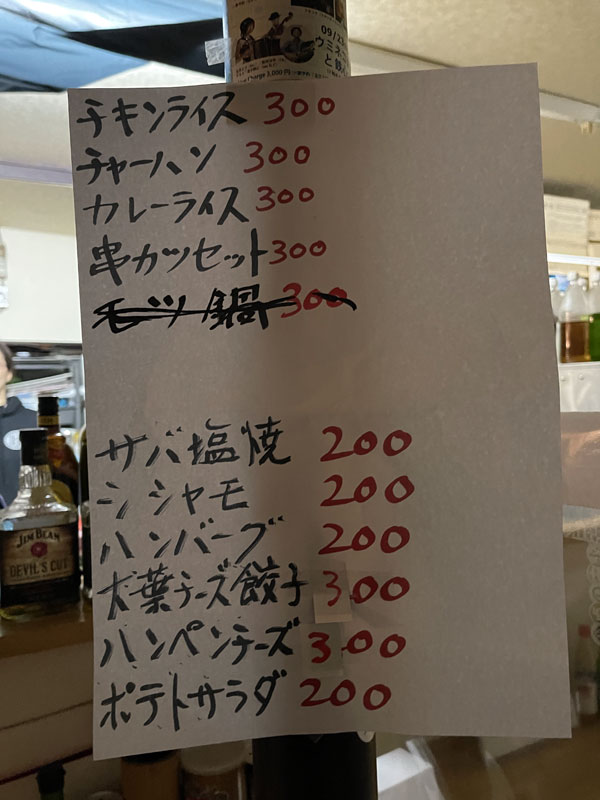 09/23
ウミネ
と鉄
Charge 3,000円
チキンライス 300
チャーハン 300
カレーライス 300
串カツセット 300
モツ鍋 300
サバ塩焼 200
シシャモ 200
ハンバーグ 200
大葉チーズ餃子 300
ハンペンチーズ 300
ポテトサラダ 200
JIM BEAM
DEVIL'S CUT